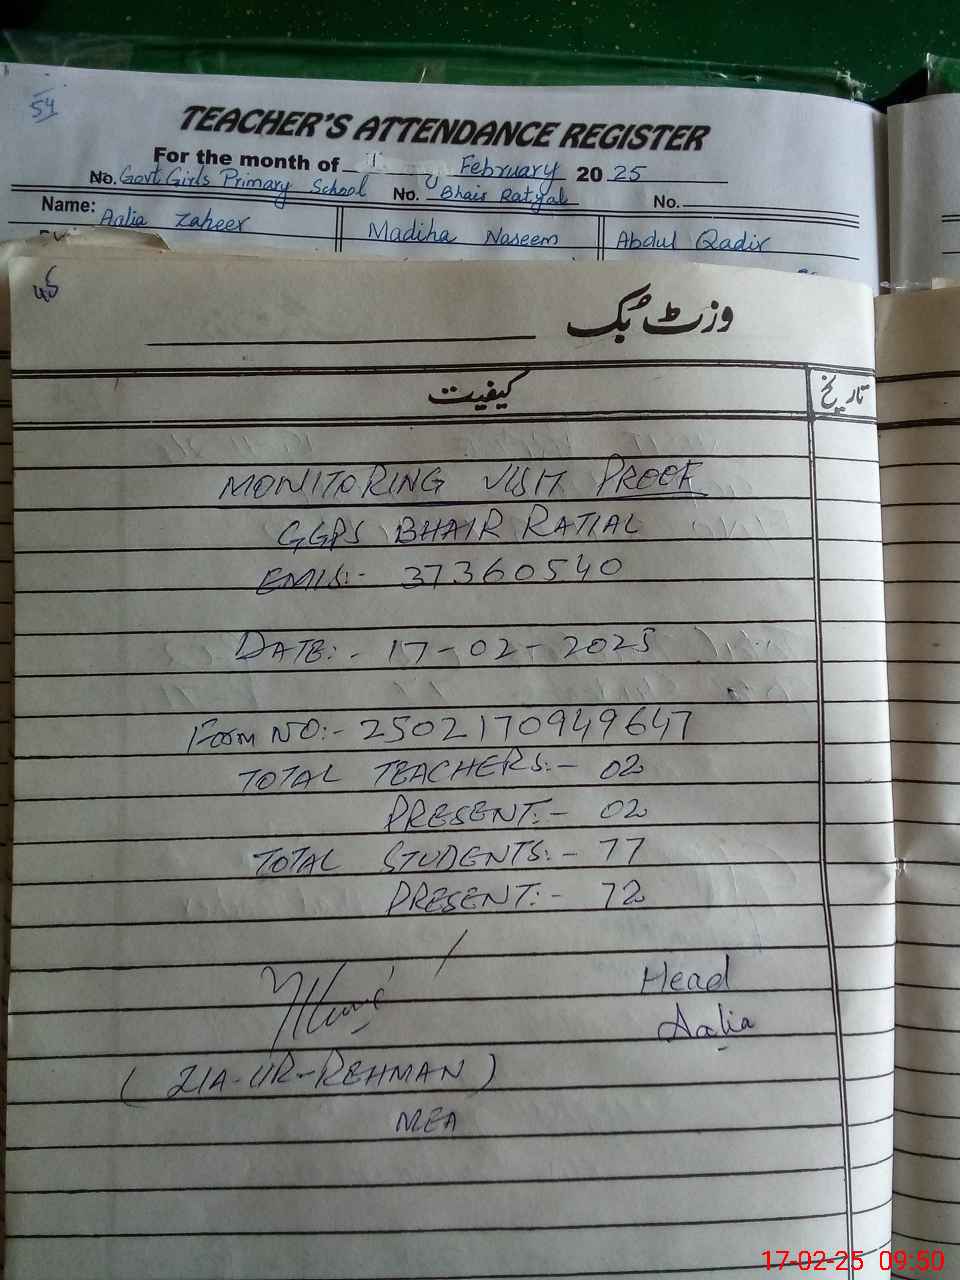 54
TEACHER'S ATTENDANCE REGISTER
For the month of February 2025
No. Govt Girls Primary School No. Bhair Ratyal No.
Name: Aalia Zaheer Madiha Naseem Abdul Qadir
45
وزٹ بُک
کیفیت تاریخ
MONITORING VISIT PROOF
GGPS BHAIR RATIAL
EMIS:- 37360540
DATE:- 17-02-2025
Form NO:- 2502170949647
TOTAL TEACHERS:- 02
PRESENT:- 02
TOTAL STUDENTS:- 77
PRESENT:- 72
Head
Aalia
(ZIA-UR-REHMAN)
MEA
17-02-25 09:50